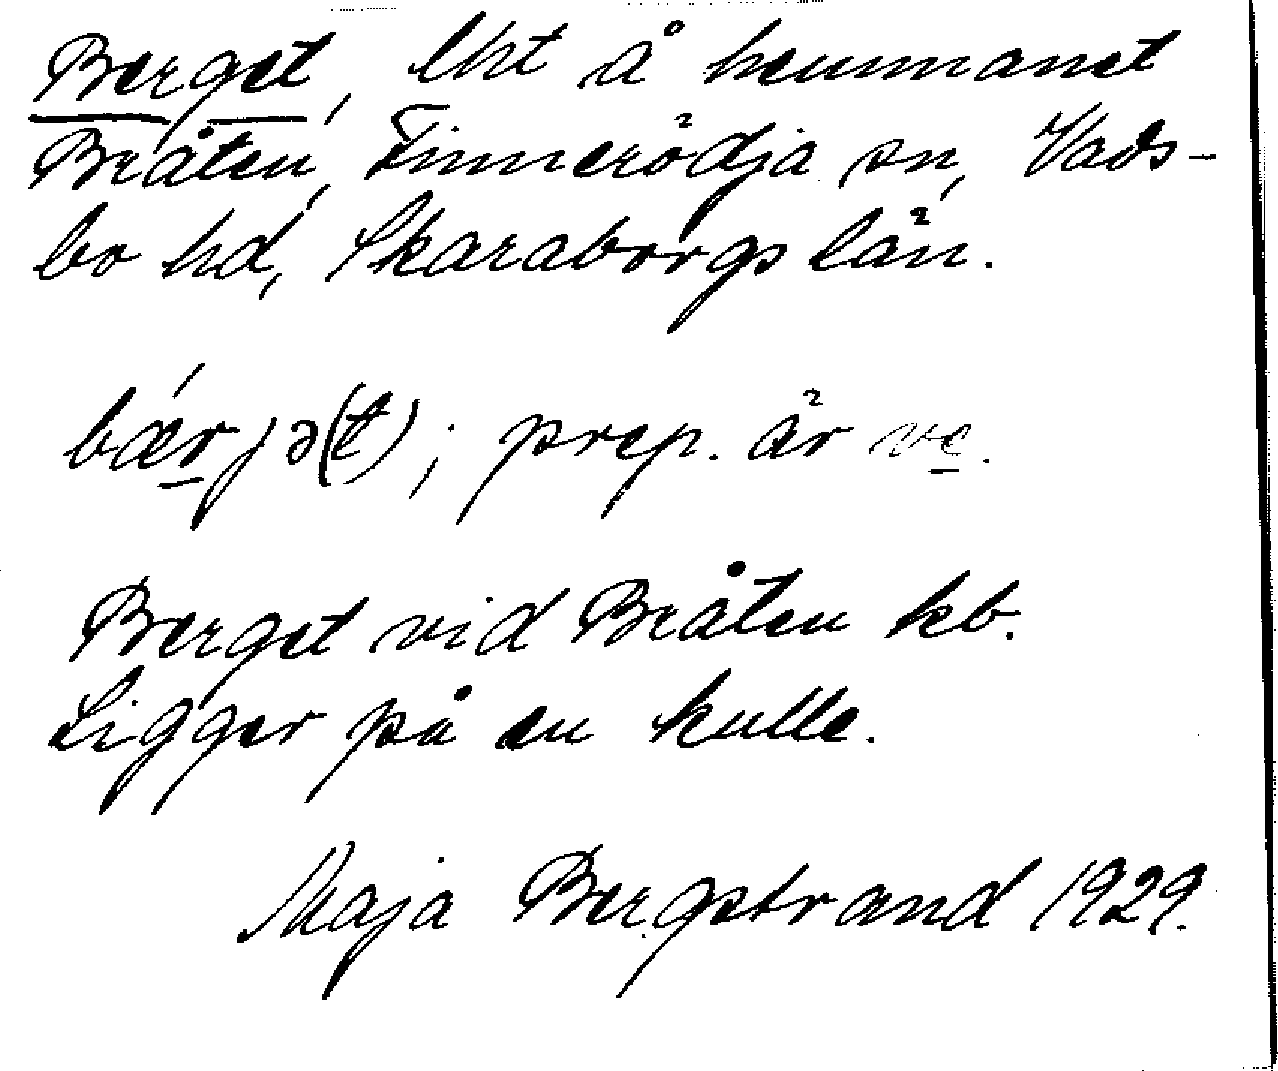 Berget, lht å hemmanet
Bråten, Finnerödja sn, Vads-
bo hd, Skaraborgs län.
bǽrjə(t); prep. är ve.
Berget vid Bråten kb.
Ligger på en kulle.
Maja Bergstrand 1929.